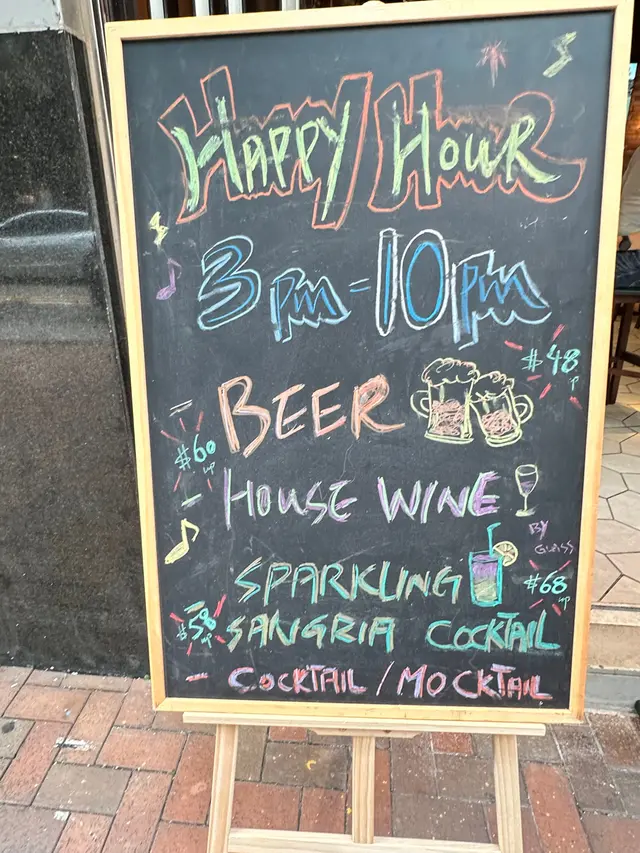 HAPPY HOUR
3 pm - 10 pm
$48
BEER
$60
up
HOUSE WINE
BY
GLASS
SPARKLING
$68
up
$58
SANGRIA COCKTAIL
- COCKTAIL / MOCKTAIL